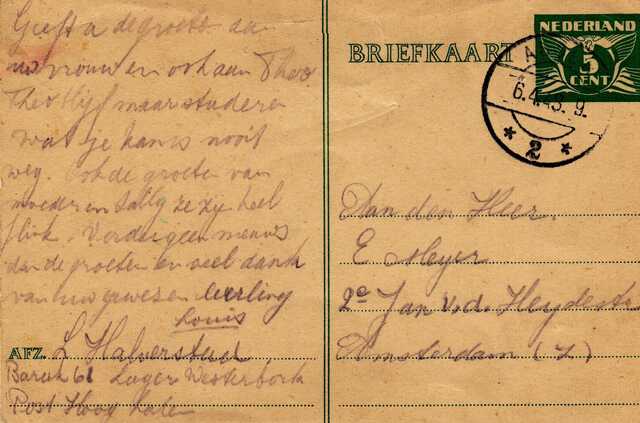 Geeft u de groeten aan
uw vrouw en ook aan Theo
Theo blijf maar studeren
wat je kan is nooit
weg. Ook de groeten van
moeder en Sally ze zijn heel
flink. Verder geen nieuws
dan de groeten en veel dank
van uw gewezen leerling
Louis
AFZ. L Halverstad
Barak 61 Lager Westerbork
Post Hoog halen
BRIEFKAART
NEDERLAND
5
CENT
6.4.43. 9.
* 2 *
Aan den Heer
E Meyer
2e Jan v.d. Heydestr
Amsterdam (Z)